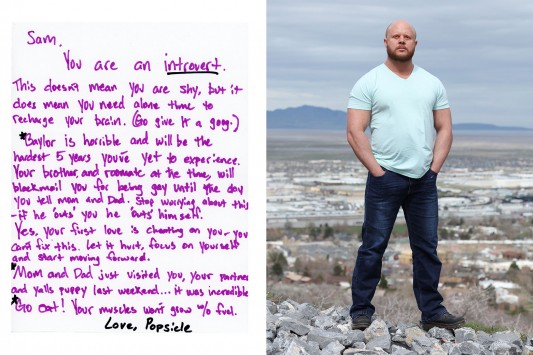 Sam,
You are an introvert.
This doesn't mean you are shy, but it
does mean you need alone time to
recharge your brain. (Go give it a goog.)
*Baylor is horrible and will be the
hardest 5 years you've yet to experience.
Your brother, and roomate at the time, will
blackmail you for being gay until the day
you tell mom and Dad. Stop worrying about this
- if he 'outs' you he 'outs' himself.
Yes, your first love is cheating on you - you
can't fix this. Let it hurt, focus on yourself
and start moving forward.
*Mom and Dad just visited you, your partner
and yalls puppy last weekend... it was incredible
*Go eat! Your muscles won't grow w/o fuel.
Love, Popsicle